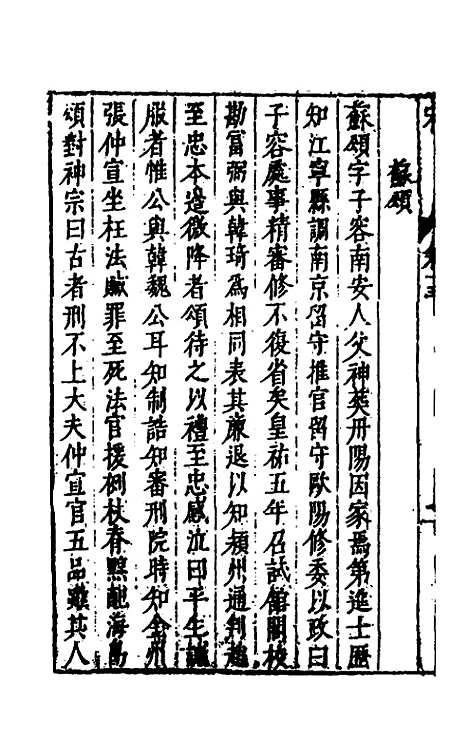 蘇頌
蘇頌字子容南安人父神葵丹陽因家焉第進士歷
知江寧縣調南京留守推官留守歐陽修委以政曰
子容處事精審修不復省矣皇祐五年召試館閣校
勘富弼與韓琦為相同表其亷退以知潁州通判趙
至忠本邉徼降者頌待之以禮至忠感泣曰平生誠
服者惟公與韓魏公耳知制誥知審刑院時知金州
張仲宣坐枉法贓罪至死法官援例杖脊黥配海島
頌對神宗曰古者刑不上大夫仲宣官五品雖其人